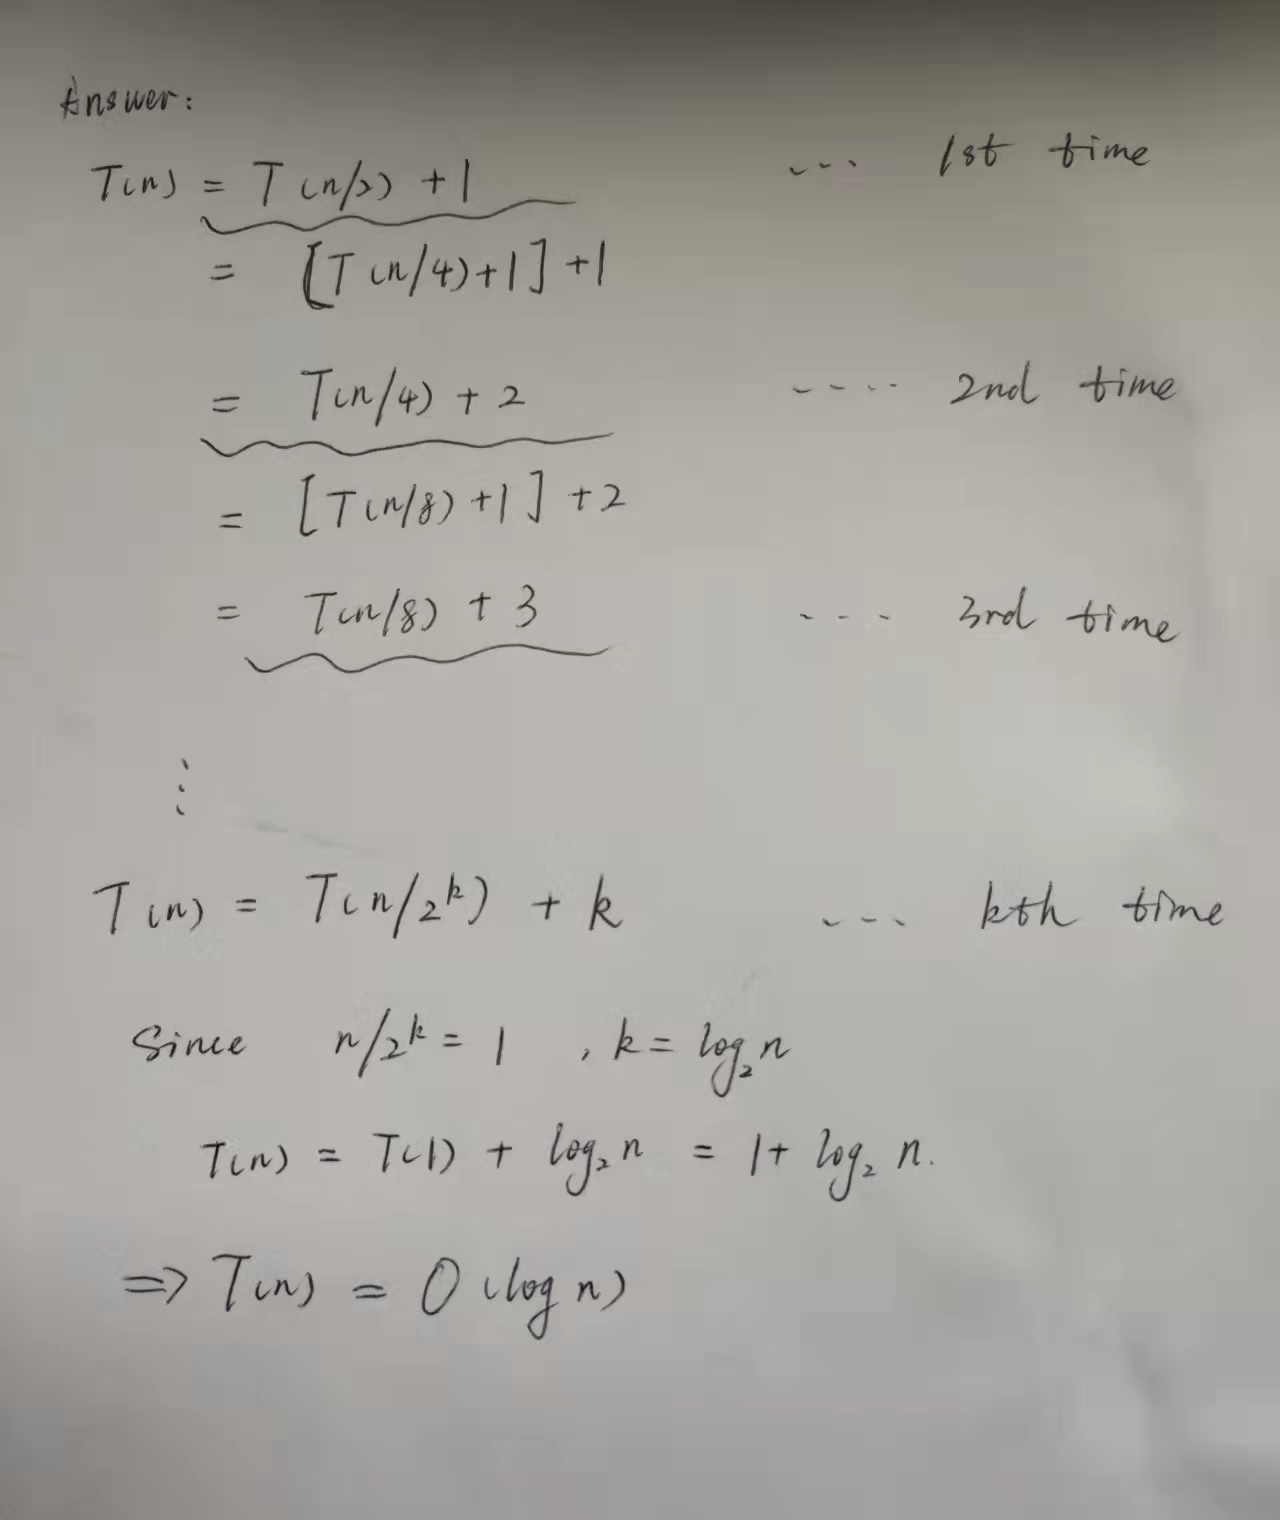 Answer:
T(n) = T(n/2) + 1 ... 1st time
= [T(n/4)+1] +1
= T(n/4) + 2 .... 2nd time
= [T(n/8) +1] +2
= T(n/8) + 3 ... 3rd time
⋮
T(n) = T(n/2^k) + k ... kth time
Since n/2^k = 1 , k = log₂n
T(n) = T(1) + log₂ n = 1+ log₂ n.
⇒ T(n) = O(log n)